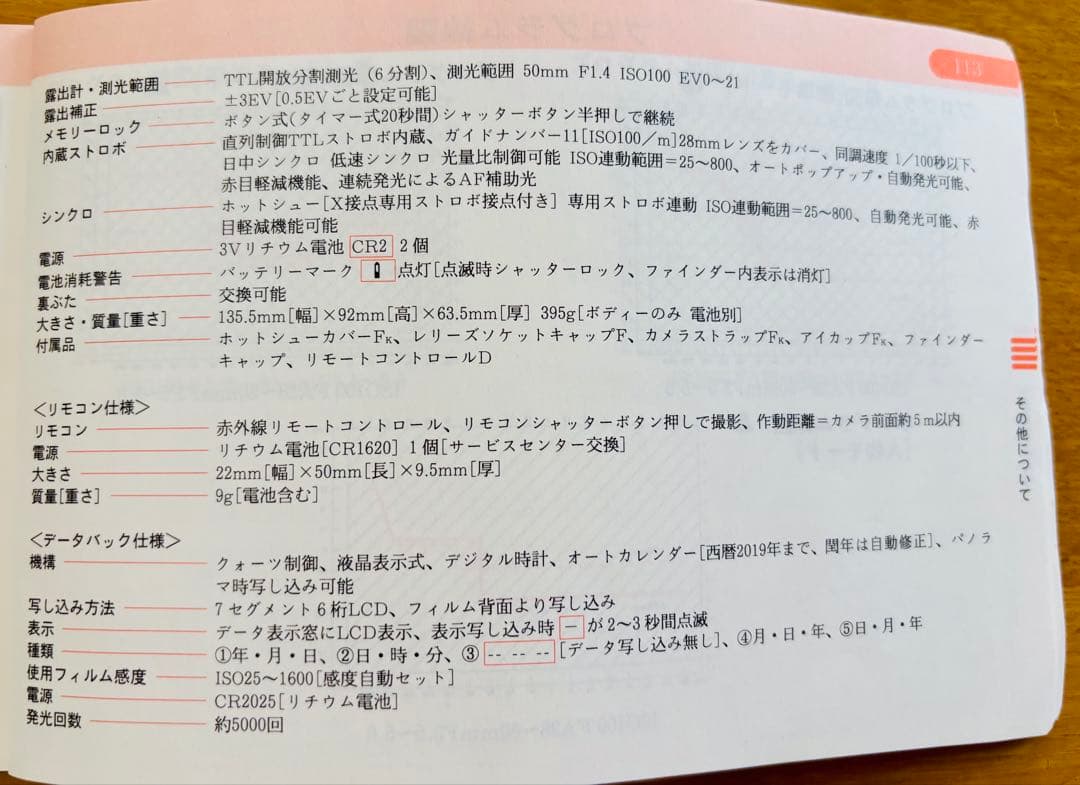 113
露出計・測光範囲 TTL開放分割測光（6分割）、測光範囲 50mm F1.4 ISO100 EV0～21
露出補正 ±3EV[0.5EVごと設定可能]
メモリーロック ボタン式(タイマー式20秒間)シャッターボタン半押しで継続
内蔵ストロボ 直列制御TTLストロボ内蔵、ガイドナンバー11[ISO100／m]28mmレンズをカバー、同調速度 1／100秒以下、
日中シンクロ 低速シンクロ 光量比制御可能 ISO連動範囲＝25～800、オートポップアップ・自動発光可能、
赤目軽減機能、連続発光によるAF補助光
シンクロ ホットシュー[X接点専用ストロボ接点付き] 専用ストロボ連動 ISO連動範囲＝25～800、自動発光可能、赤
目軽減機能可能
電源 3Vリチウム電池 CR2 2個
電池消耗警告 バッテリーマーク 点灯[点滅時シャッターロック、ファインダー内表示は消灯]
裏ぶた 交換可能
大きさ・質量[重さ] 135.5mm[幅]×92mm[高]×63.5mm[厚] 395g[ボディーのみ 電池別]
付属品 ホットシューカバーFK、レリーズソケットキャップF、カメラストラップFK、アイカップFK、ファインダー
キャップ、リモートコントロールD
＜リモコン仕様＞
リモコン 赤外線リモートコントロール、リモコンシャッターボタン押しで撮影、作動距離＝カメラ前面約5m以内
電源 リチウム電池[CR1620] 1個[サービスセンター交換]
大きさ 22mm[幅]×50mm[長]×9.5mm[厚]
質量[重さ] 9g[電池含む]
＜データバック仕様＞
機構 クォーツ制御、液晶表示式、デジタル時計、オートカレンダー[西暦2019年まで、閏年は自動修正]、パノラ
マ時写し込み可能
写し込み方法 7セグメント6桁LCD、フィルム背面より写し込み
表示 データ表示窓にLCD表示、表示写し込み時 － が2～3秒間点滅
種類 ①年・月・日、②日・時・分、③ -- -- -- [データ写し込み無し]、④月・日・年、⑤日・月・年
使用フィルム感度 ISO25～1600[感度自動セット]
電源 CR2025[リチウム電池]
発光回数 約5000回
その他について